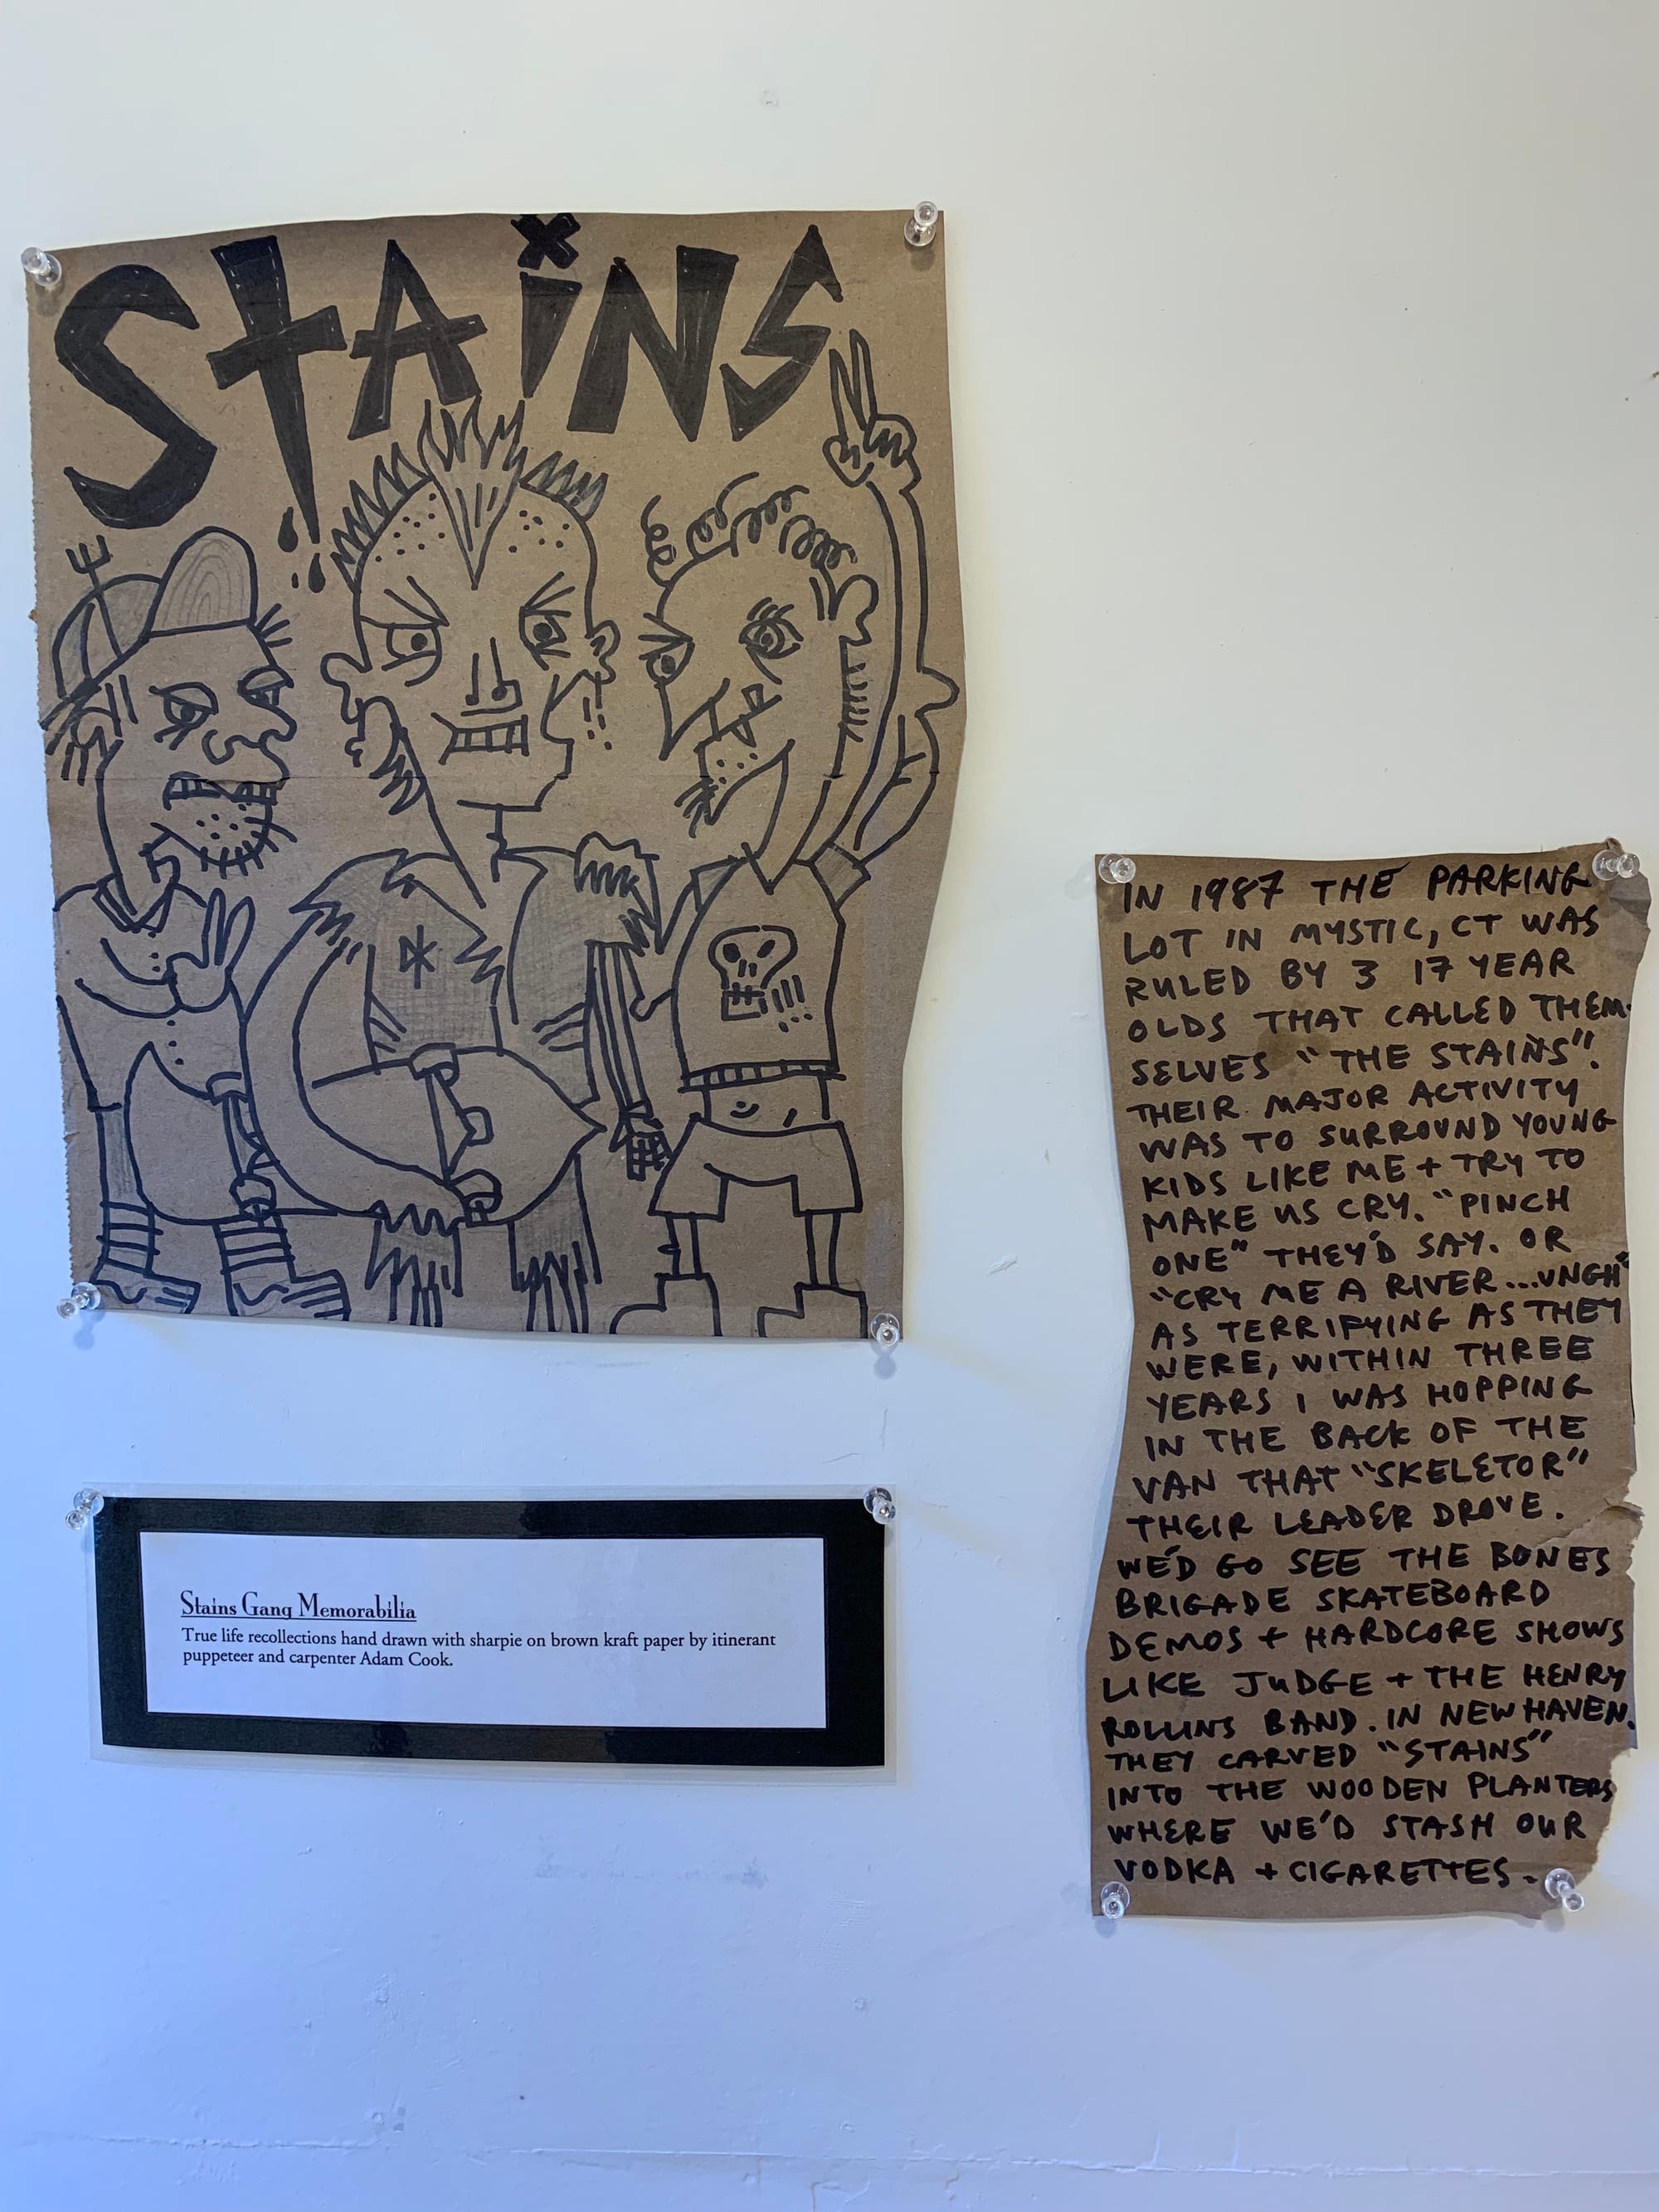 STAiNS
Stains Gang Memorabilia
True life recollections hand drawn with sharpie on brown kraft paper by itinerant
puppeteer and carpenter Adam Cook.
IN 1987 THE PARKING
LOT IN MYSTIC, CT WAS
RULED BY 3 17 YEAR
OLDS THAT CALLED THEM-
SELVES "THE STAINS".
THEIR MAJOR ACTIVITY
WAS TO SURROUND YOUNG
KIDS LIKE ME + TRY TO
MAKE US CRY. "PINCH
ONE" THEY'D SAY. OR
"CRY ME A RIVER...UNGH"
AS TERRIFYING AS THEY
WERE, WITHIN THREE
YEARS I WAS HOPPING
IN THE BACK OF THE
VAN THAT "SKELETOR"
THEIR LEADER DROVE.
WE'D GO SEE THE BONES
BRIGADE SKATEBOARD
DEMOS + HARDCORE SHOWS
LIKE JUDGE + THE HENRY
ROLLINS BAND. IN NEW HAVEN.
THEY CARVED "STAINS"
INTO THE WOODEN PLANTERS
WHERE WE'D STASH OUR
VODKA + CIGARETTES.